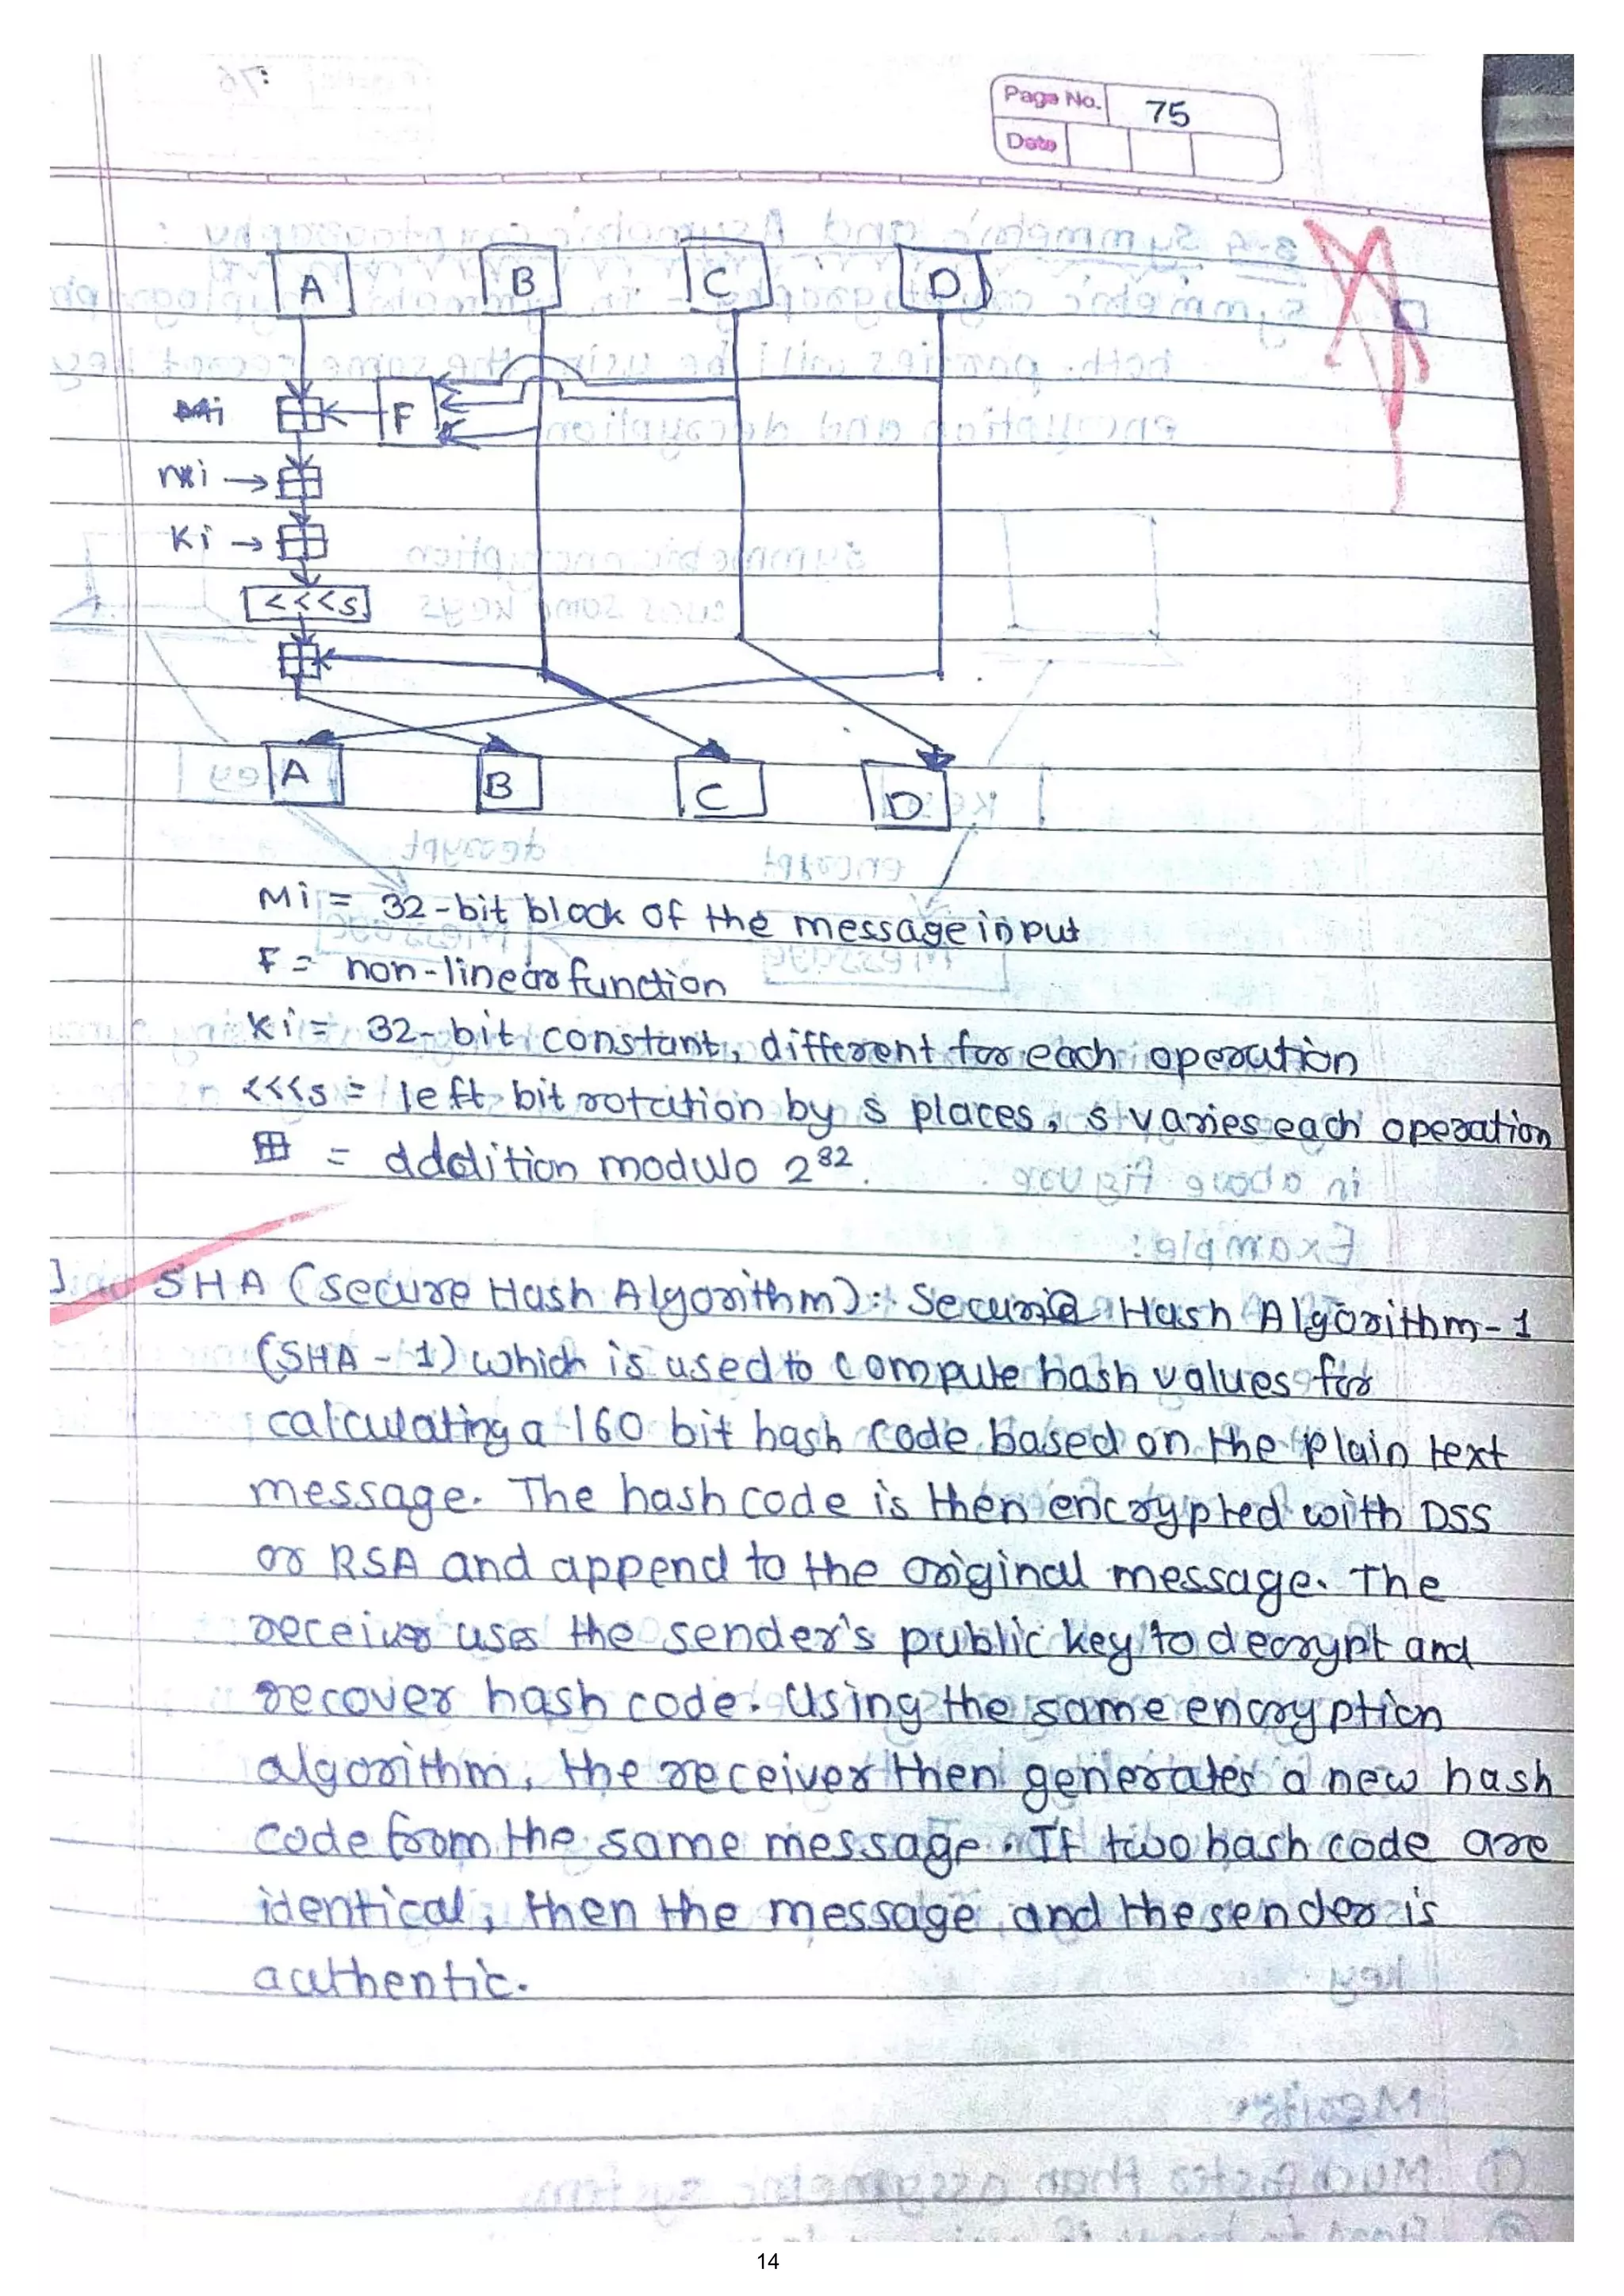 Page No. 75
Date
A B C D
F
Mi
Ki
<<<s
A B C D
Mi = 32-bit block of the message input
F = non-linear function
Ki = 32-bit constant, different for each operation
<<<s = left bit rotation by s places, s varies each operation
⊞ = addition modulo 2^32.
SHA (Secure Hash Algorithm):- Secure Hash Algorithm-1
(SHA-1) which is used to compute hash values for
calculating a 160 bit hash code based on the plain text
message. The hash code is then encrypted with DSS
or RSA and append to the original message. The
receiver uses the sender's public key to decrypt and
recover hash code. Using the same encryption
algorithm, the receiver then generates a new hash
code from the same message. If two hash code are
identical, then the message and the sender is
authentic.
14